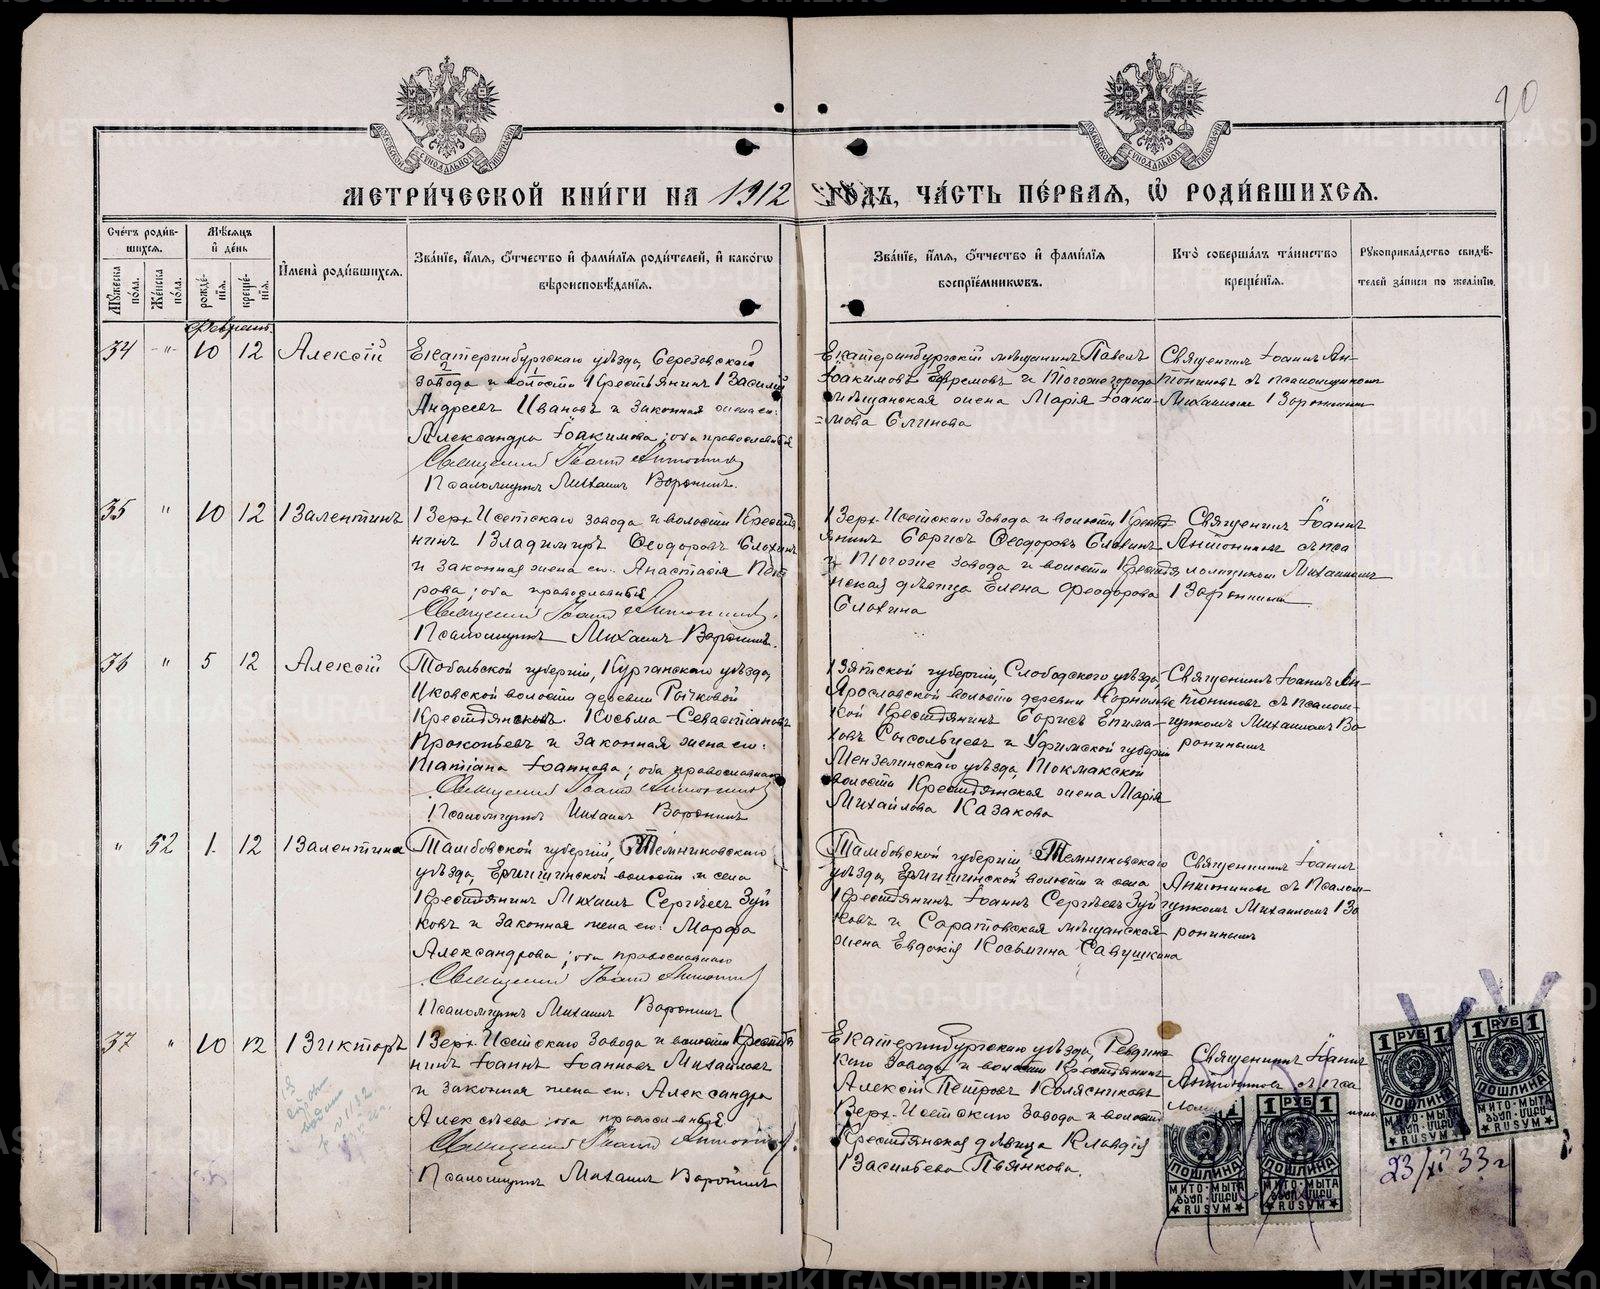 МЕТРИ́ЧЕСКОЙ КНИ́ГИ НА 1912 ГО́ДЪ, ЧА́СТЬ ПЕ́РВАЯ, Ѡ҆ РОДИ́ВШИХСЯ.
20
Сче́тъ роди́в-
шихся.
Му́жеска по́ла.
Же́нска по́ла.
Мѣ́сяцъ и де́нь
рожде́-нїя.
креще́-нїя.
Имена̀ роди́вшихся.
Зва́нїе, и́мя, о́тчество и фами́лїя роди́телей, и како́гѡ
вѣроисповѣ́данїя.
Зва́нїе, и́мя, о́тчество и фами́лїя
воспрїе́мникѡвъ.
Кто̀ соверша́лъ та́инство
креще́нїя.
Рукоприкла́дство свидѣ́-
телей за́писи по жела́нїю.
Февраль
34 " 10 12 Алексій
Екатеринбургскаго уѣзда, Березовскаго
завода и волости Крестьянинъ Василій
Андреевъ Ивановъ и законная жена его:
Александра Іоакимова; оба православные
Священникъ Іоаннъ Антониновъ
Псаломщикъ Михаилъ Воронинъ.
Екатеринбургскій мѣщанинъ Павелъ
Іоакимовъ Ефремовъ и тогоже города
мѣщанская жена Марія Іоаки-
=мова Блинова
Священникъ Іоаннъ Ан-
тониновъ съ псаломщикомъ
Михаиломъ Воронинымъ
35 " 10 12 Валентинъ
Верх-Исетскаго завода и волости Крестья
нинъ Владимиръ Ѳеодоровъ Блохинъ
и законная жена его: Анастасія Пет
рова; оба православные
Священникъ Іоаннъ Антониновъ
Псаломщикъ Михаилъ Воронинъ.
Верх-Исетскаго завода и волости Крестья
янинъ Борисъ Ѳеодоровъ Блохинъ
и тогоже завода и волости Крестья
нская дѣвица Елена Ѳеодорова
Блохина
Священникъ Іоаннъ
Антониновъ съ пса
ломщикомъ Михаиломъ
Воронинымъ
36 " 5 12 Алексій
Тобольской губерніи, Курганскаго уѣзда,
Иковской волости деревни Рычковой
Косьма Севастіановъ
Прокопьевъ и законная жена его:
Татіана Іоаннова; оба православные
Священникъ Іоаннъ Антониновъ
Псаломщикъ Михаилъ Воронинъ
Вятской губерніи, Слободского уѣзда,
Ярославской волости деревни
Крестьянинъ Борисъ
Сысольцевъ и Уфимской губерніи
Мензелинскаго уѣзда, Токмакской
волости Крестьянская жена Марія
Михайлова Казакова
Священникъ Іоаннъ Ан-
тониновъ съ псалом-
щикомъ Михаиломъ Во
ронинымъ
" 52 1. 12 Валентина
Тамбовской губерніи, Темниковскаго
уѣзда, волости и села
Крестьянинъ Михаилъ Сергѣевъ Зуй
ковъ и законная жена его: Марфа
Александрова; оба православные
Священникъ Іоаннъ Антониновъ
Псаломщикъ Михаилъ Воронинъ
Тамбовской губерніи Темниковскаго
уѣзда, волости и села
Крестьянинъ Іоаннъ Сергѣевъ Зуй
ковъ и Саратовская мѣщанская
жена Евдокія Косьмина Савушкина
Священникъ Іоаннъ
Антониновъ съ псалом-
щикомъ Михаиломъ Во
ронинымъ
37 " 10 12 Викторъ
Верх-Исетскаго завода и волости Крестья
нинъ Іоаннъ Іоанновъ Михайловъ
и законная жена его: Александра
Алексѣева; оба православные
Священникъ Іоаннъ Антониновъ.
Псаломщикъ Михаилъ Воронинъ
Екатеринбургскаго уѣзда, Ревдин
скаго завода и волости Крестьянинъ
Алексій Петровъ Колясниковъ
Верх-Исетскаго завода и волости
Крестьянская дѣвица Клавдія
Васильева Пьянкова.
Священникъ Іоаннъ
Антониновъ съ пса
1 РУБ 1
ПОШЛИНА
МИТО·МЫТА
RUSYM
1 РУБ 1
ПОШЛИНА
МИТО·МЫТА
RUSYM
1 РУБ 1
ПОШЛИНА
МИТО·МЫТА
RUSYM
ПОШЛИНА
МИТО·МЫТА
RUSYM
23/XI 33 г
METRIKI.GASO-URAL.RU